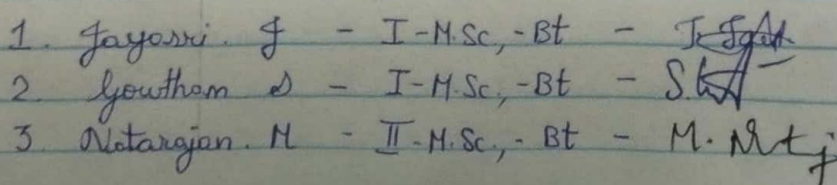 1. Jayasri. J - I - M.Sc., - Bt -
2. Gowtham S - I - M.Sc., - Bt -
3. Natarajan. M - II - M.Sc., - Bt - M.